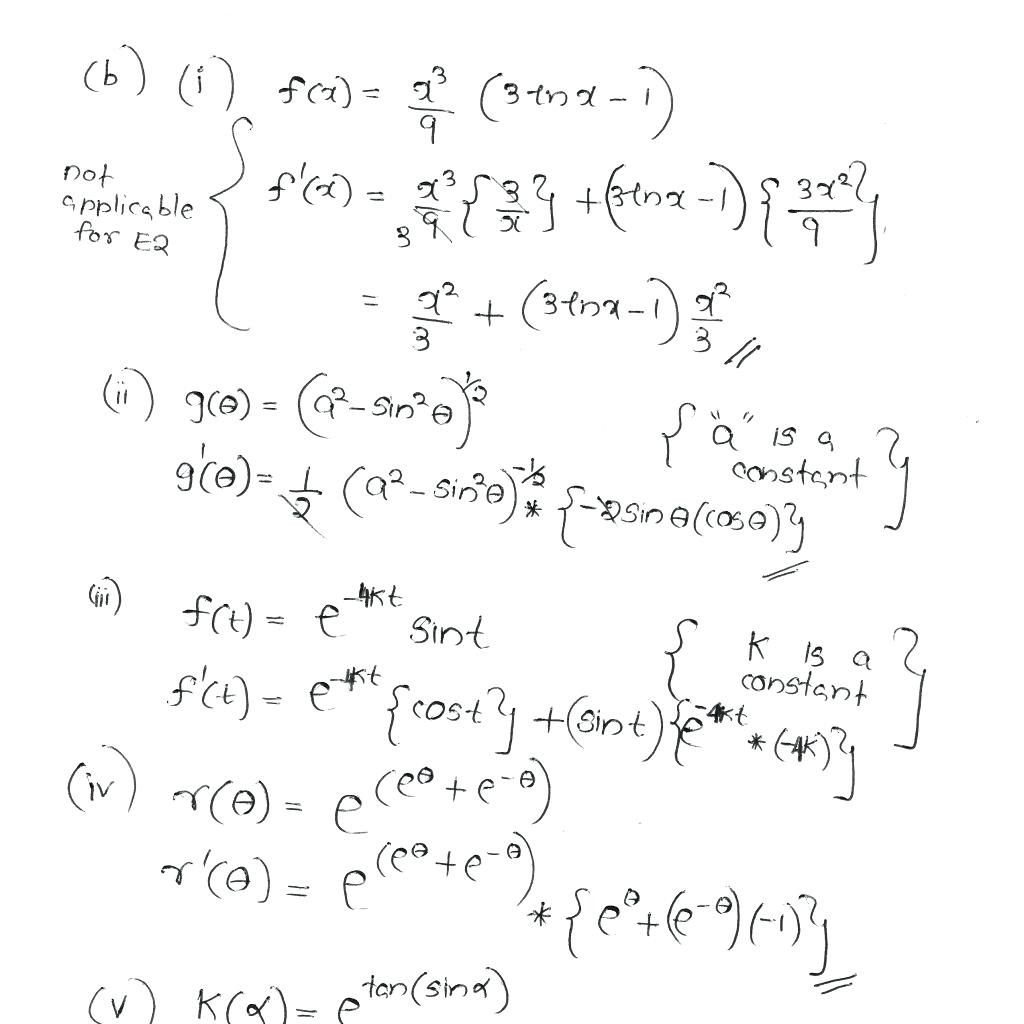 (b) (i) f(x) = x³/9 (3 ln x - 1)
not applicable for E2
f'(x) = x³/9 {3/x} + (3 ln x - 1) {3x²/9}
3
= x²/3 + (3 ln x - 1) x²/3 //
(ii) g(θ) = (a² - sin²θ)^1/2
{ "a" is a constant }
g'(θ) = 1/2 (a² - sin²θ)^-1/2 * {-2 sin θ (cos θ)}
(iii) f(t) = e^-4kt sin t
{ K is a constant }
f'(t) = e^-4kt {cos t} + (sin t) {e^-4kt * (-4K)}
(iv) r(θ) = e^(e^θ + e^-θ)
r'(θ) = e^(e^θ + e^-θ) * {e^θ + (e^-θ)(-1)}
(v) K(α) = e^tan(sin α)